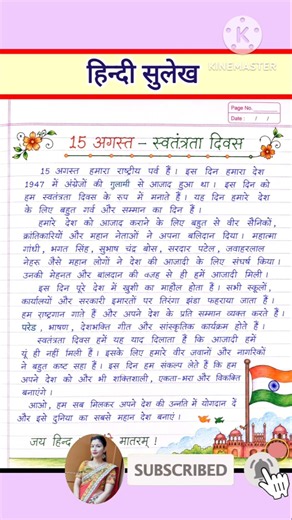 KINEMASTER
हिन्दी सुलेख
Page No.
Date : / /
15 अगस्त – स्वतंत्रता दिवस
15 अगस्त हमारा राष्ट्रीय पर्व है । इस दिन हमारा देश
1947 में अंग्रेजों की गुलामी से आजाद हुआ था । इस दिन को
हम स्वतंत्रता दिवस के रूप में मनाते हैं । यह दिन हमारे देश
के लिए बहुत गर्व और सम्मान का दिन है ।
हमारे देश को आजाद कराने के लिए बहुत से वीर सैनिकों,
क्रांतिकारियों और महान नेताओं ने अपना बलिदान दिया । महात्मा
गांधी, भगत सिंह, सुभाष चंद्र बोस, सरदार पटेल, जवाहरलाल
नेहरू जैसे महान लोगों ने देश की आजादी के लिए संघर्ष किया ।
उनकी मेहनत और बालदान की वजह से ही हमें आजादी मिली ।
इस दिन पूरे देश में खुशी का माहौल होता है । सभी स्कूलों,
कार्यालयों और सरकारी इमारतों पर तिरंगा झंडा फहराया जाता है ।
हम राष्ट्रगान गाते हैं और अपने देश के प्रति सम्मान व्यक्त करते हैं ।
परेड, भाषण, देशभक्ति गीत और सांस्कृतिक कार्यक्रम होते हैं ।
स्वतंत्रता दिवस हमें यह याद दिलाता है कि आजादी हमें
यूं ही नहीं मिली है । इसके लिए हमारे वीर जवानों और नागरिकों
ने बहुत कष्ट सहा है । इस दिन हम संकल्प लेते हैं कि हम
अपने देश को और भी शक्तिशाली, एकता-भरा और विकसित
बनाएंगे ।
आओ, हम सब मिलकर अपने देश की उन्नति में योगदान दें
और इसे दुनिया का सबसे महान देश बनाएं ।
जय हिन्द मातरम् !
SUBSCRIBED